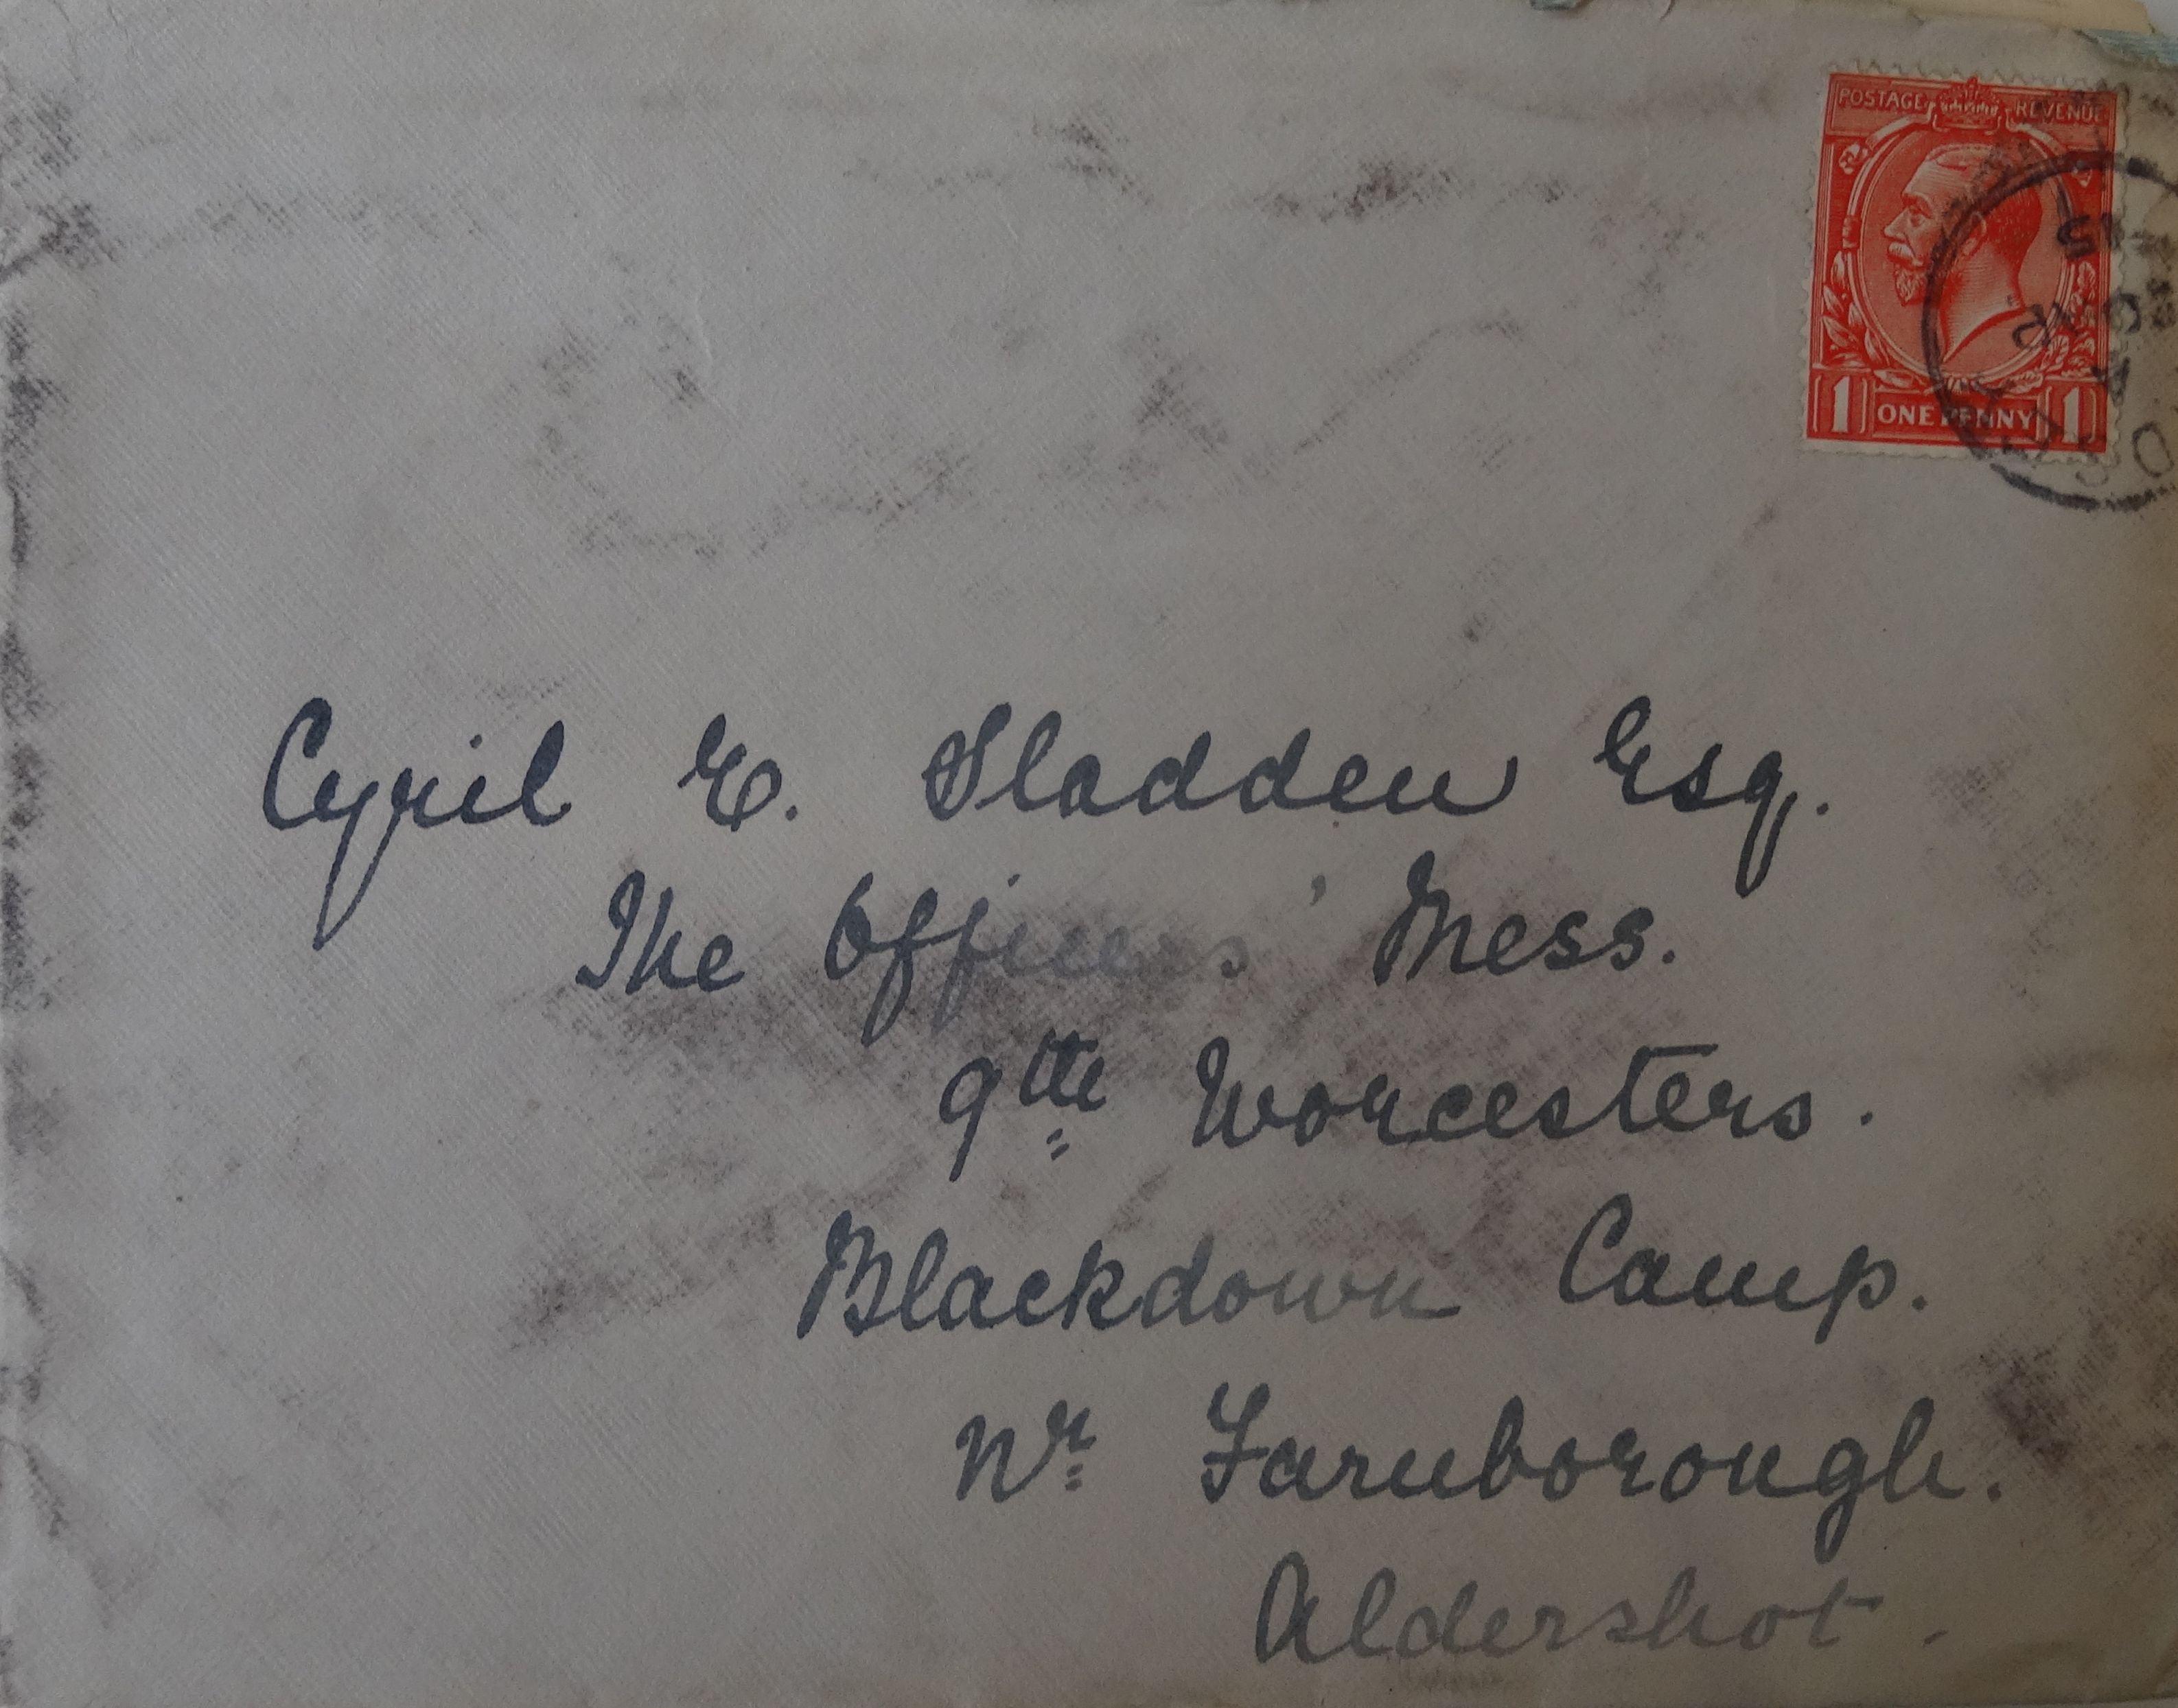 POSTAGE REVENUE
1 ONE PENNY 1
Cyril E. Sladden Esq.
The Officers' Mess.
9th Worcesters.
Blackdown Camp.
Nr Farnborough.
Aldershot.